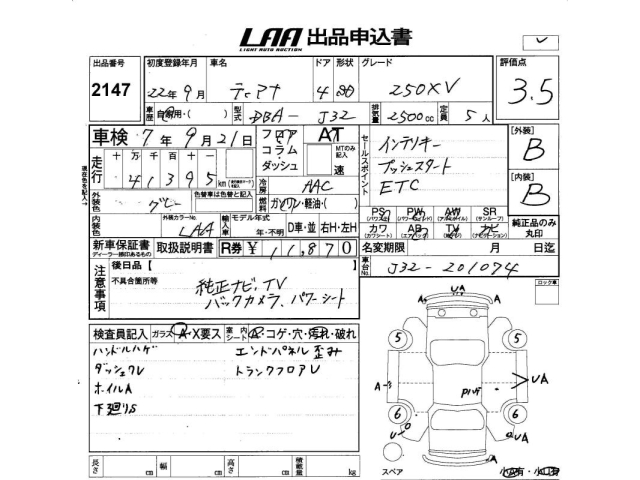 LAA 出品申込書
LIGHT AUTO AUCTION
出品番号 初度登録年月 車名 ドア 形状 グレード 評価点
2147 22年9月 ティアナ 4 250XV 3.5
車歴 自家用・( ) 型式 DBA-J32 排気量 2500cc 定員 5人
車検 7年9月21日 フロア コラム・ダッシュ AT セールスポイント インテリキー [外装] B
走行 十万千百十 41395 km MTのみ記入 速 プッシュスタート
冷房 AAC ETC [内装] B
外装色 グレー 色替車は色替と記入 燃料 ガソリン・軽油・( )
内装色 外装カラーNo. LAA 輸入車 モデル年式 年 D車・並 右H・左H
PS PW AW SR
カワ AB TV ナビ 純正品のみ丸印
新車保証書 取扱説明書 R券 ¥11,870 名変期限 月 日迄
ディーラー捺印あるもの
注意事項 後日品【 】 車台No. J32-201074
不具合箇所等 純正ナビ、TV
バックカメラ、パワーシート
ロック車
検査員記入 ガラス A・X要ス 案内シート コゲ・穴・汚れ・破れ
ハンドルハゲ エンドパネル歪み
ダッシュU トランクフロアU
ホイルA
下廻りS
UA
A A
5 5
A UA
6 6
U A
スペア
長さ cm 幅 cm 高さ cm 積載量 kg